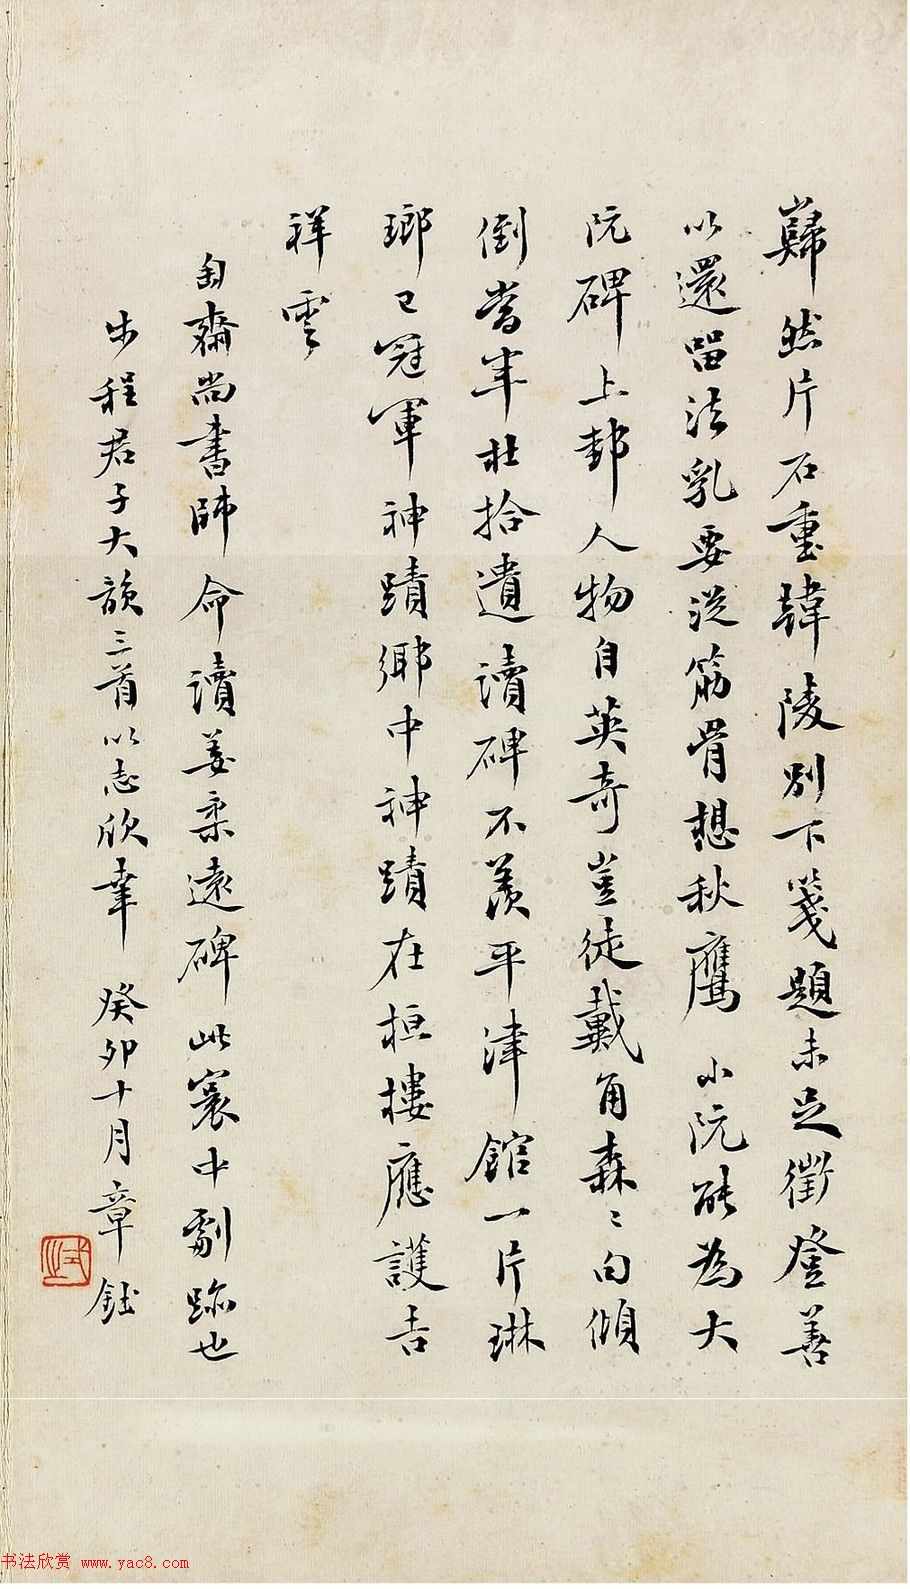 巋然片石重韓陵別下箋題未足徵登善
以還留法乳要從筋骨想秋鷹 小阮能為大
阮碑上邽人物自英奇豈徒戴角森〻句傾
倒當年杜拾遺讀碑不羨平津館一片琳
瑯已冠軍神蹟鄉中神蹟在桓樓應護吉
祥雲
匋齋尚書師命讀姜柔遠碑此寰中劇跡也
步程君子大韻三首以志欣幸 癸卯十月章鈺
书法欣赏 www.yac8.com